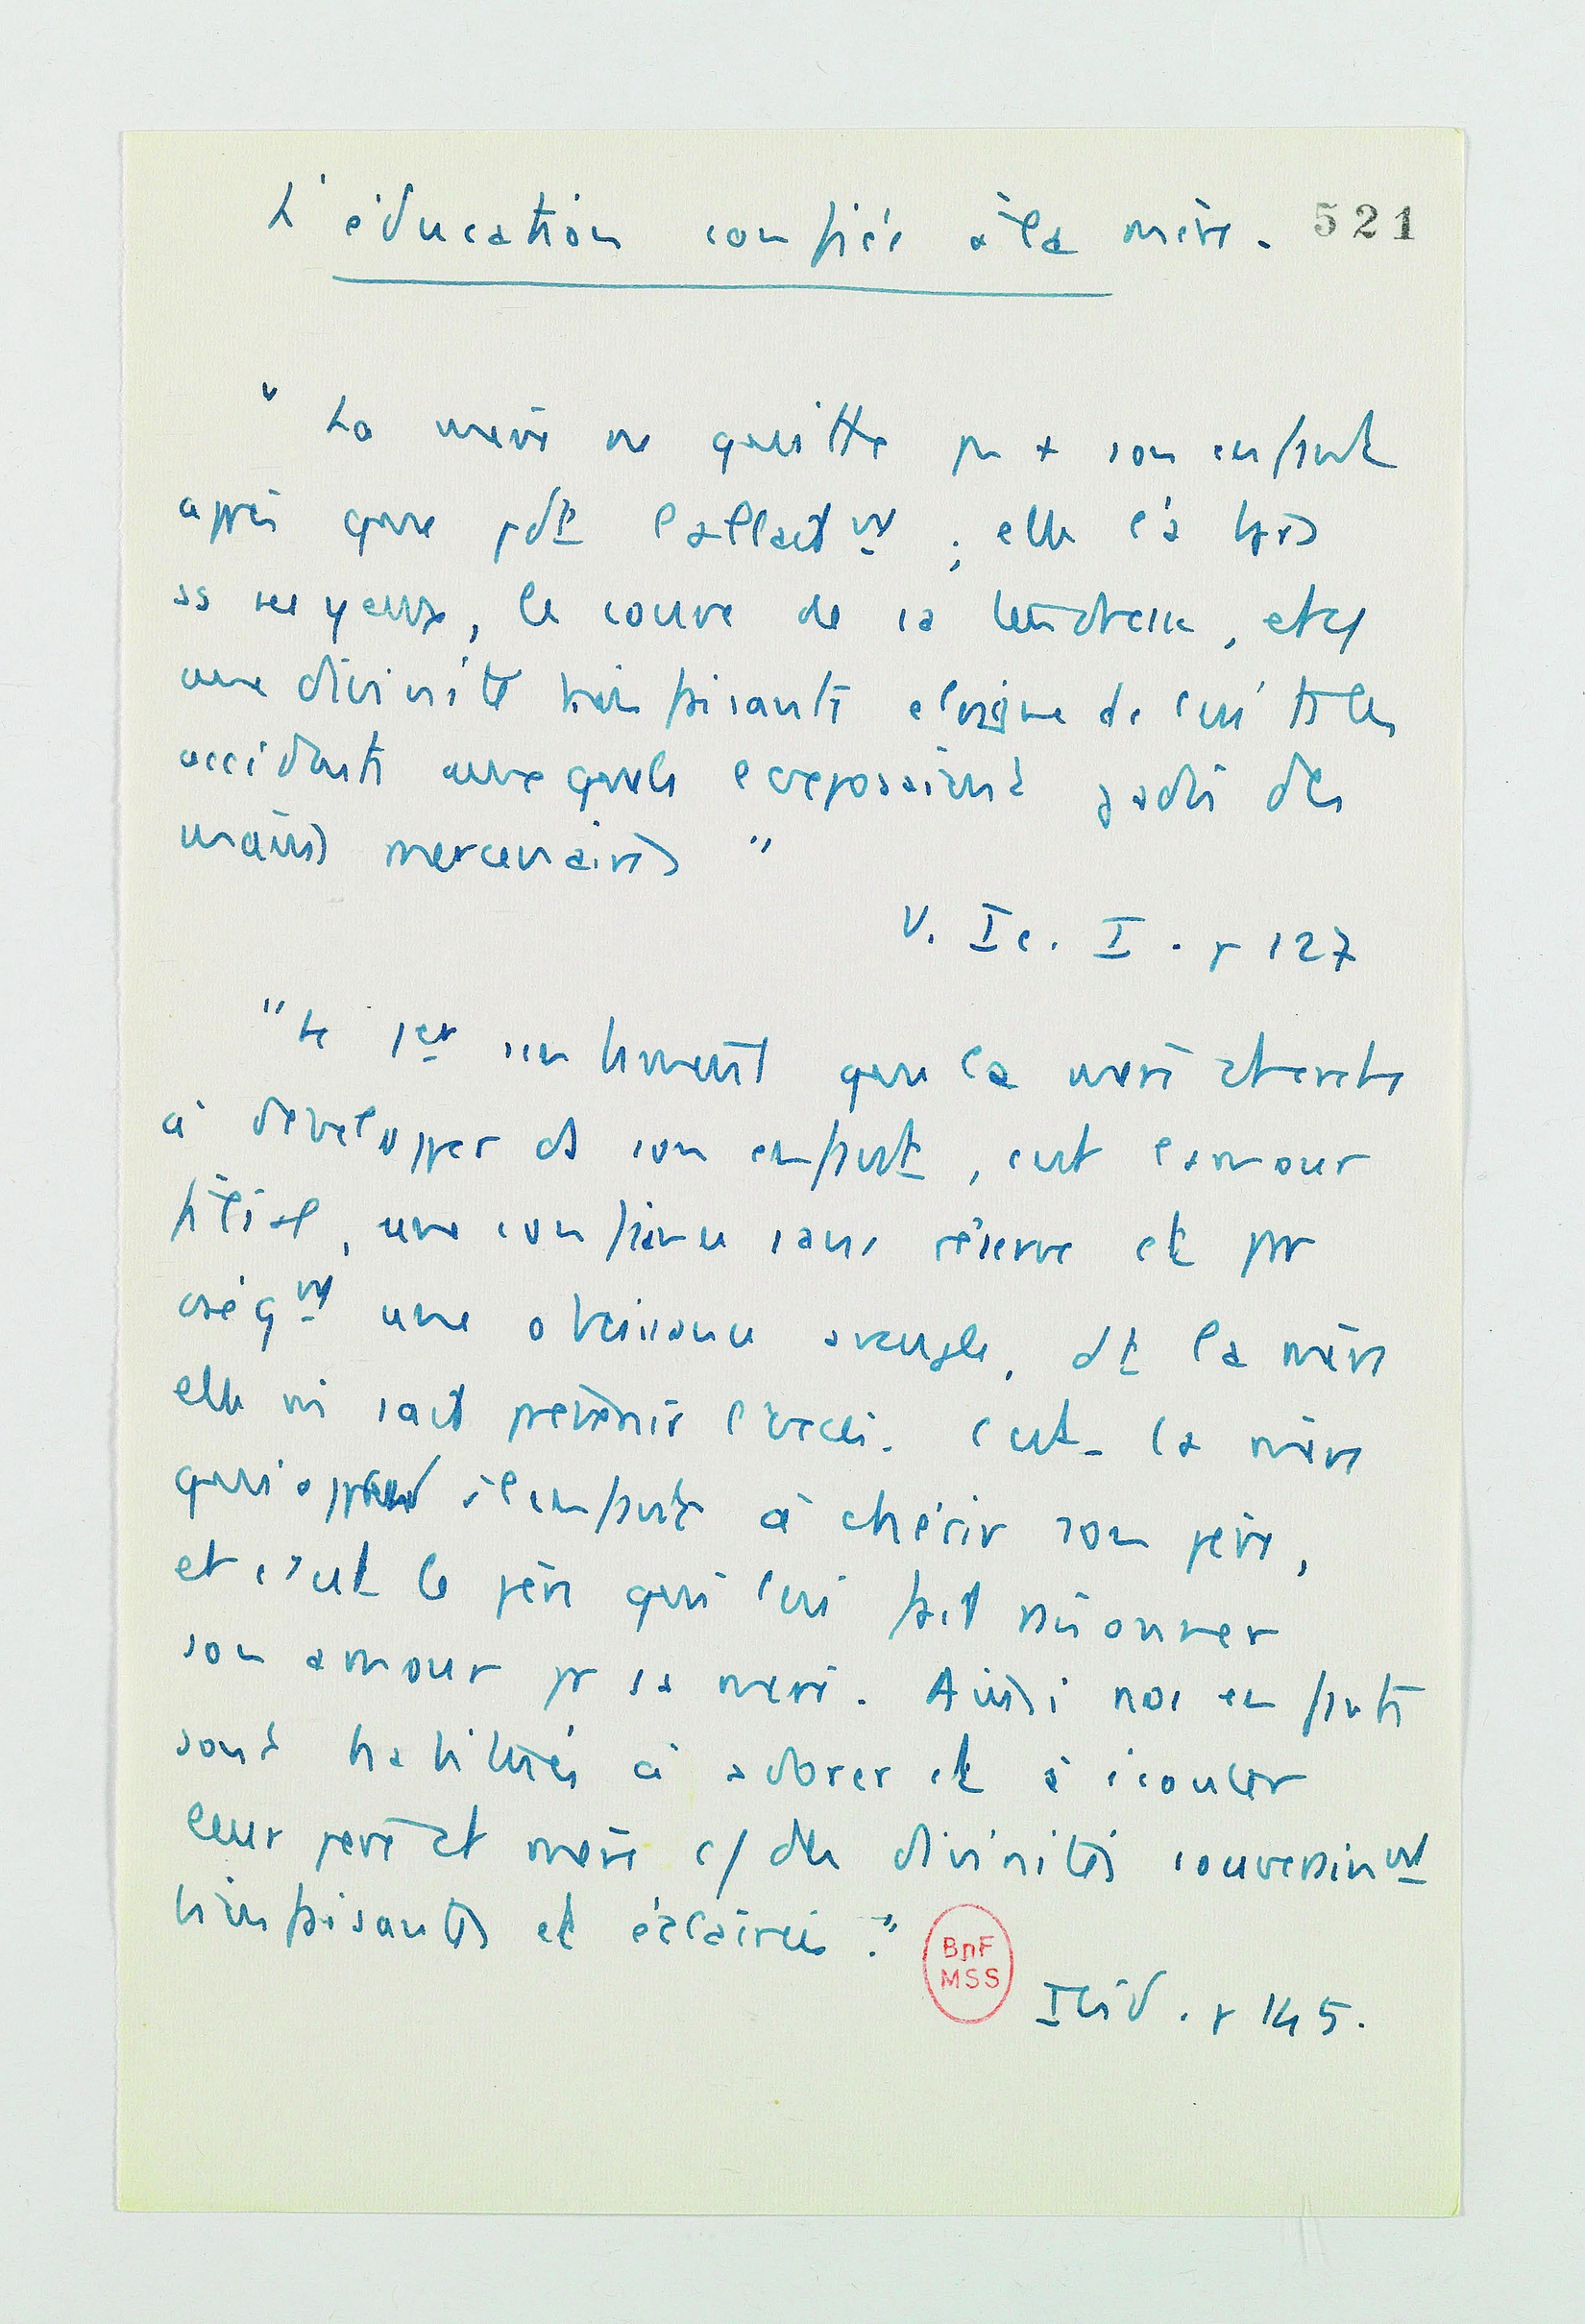 L'éducation confiée à la mère. 521
" La mère ne quitte pas + son enfant
après que pdt l'allait^mt ; elle l'a tjrs
ss ses yeux, le couve de sa tendresse, et c/
une divinité bienfaisante eloigne de lui ts les
accidents auxquels l'exposaient jadis des
mains mercenaires "
V. Ic. I. p 127
"Le 1er sentiment que la mère cherche
à développer ds son enfant, c'est l'amour
filial, une confiance sans réserve et par
conség^mt une obéissance aveugle, dt la mère
elle m sait prévenir l'excès. C'est la mère
qui apprend à l'enfant à chérir son père,
et c'est le père qui lui fait raisonner
son amour pr sa mère. Ainsi nos enfants
sont habitués à adorer et à écouter
leur père et mère c/ des divinités souverain^mt
bienfaisantes et éclairées."
Ibid. p 145.
BnF
MSS